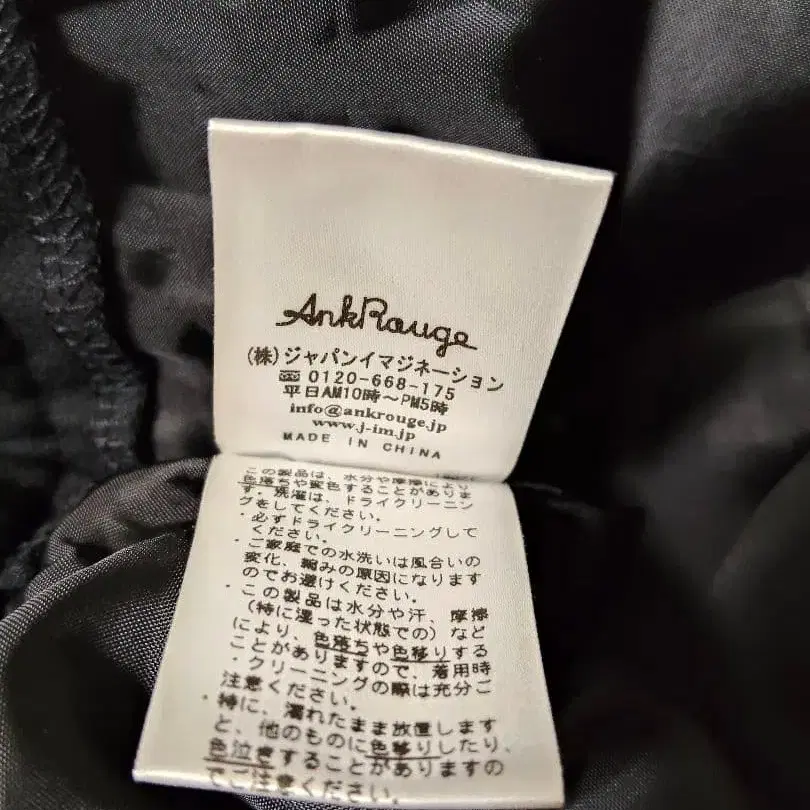 AnkRouge
(株)ジャパンイマジネーション
0120-668-175
平日AM10時～PM5時
info@ankrouge.jp
www.j-im.jp
MADE IN CHINA
この製品は、水分や摩擦により
色落ちや変色することがありま
す。洗濯は、ドライクリーニン
グをしてください。
・必ずドライクリーニングして
ください。
・ご家庭での水洗いは風合いの
変化、縮みの原因になります
のでお避けください。
・この製品は水分や汗、摩擦
(特に湿った状態での)など
により、色落ちや色移りする
ことがありますので、着用時
・クリーニングの際は充分ご
注意ください。
・特に、濡れたまま放置します
と、他のものに色移りしたり、
色泣きすることがありますの
でご注意ください。